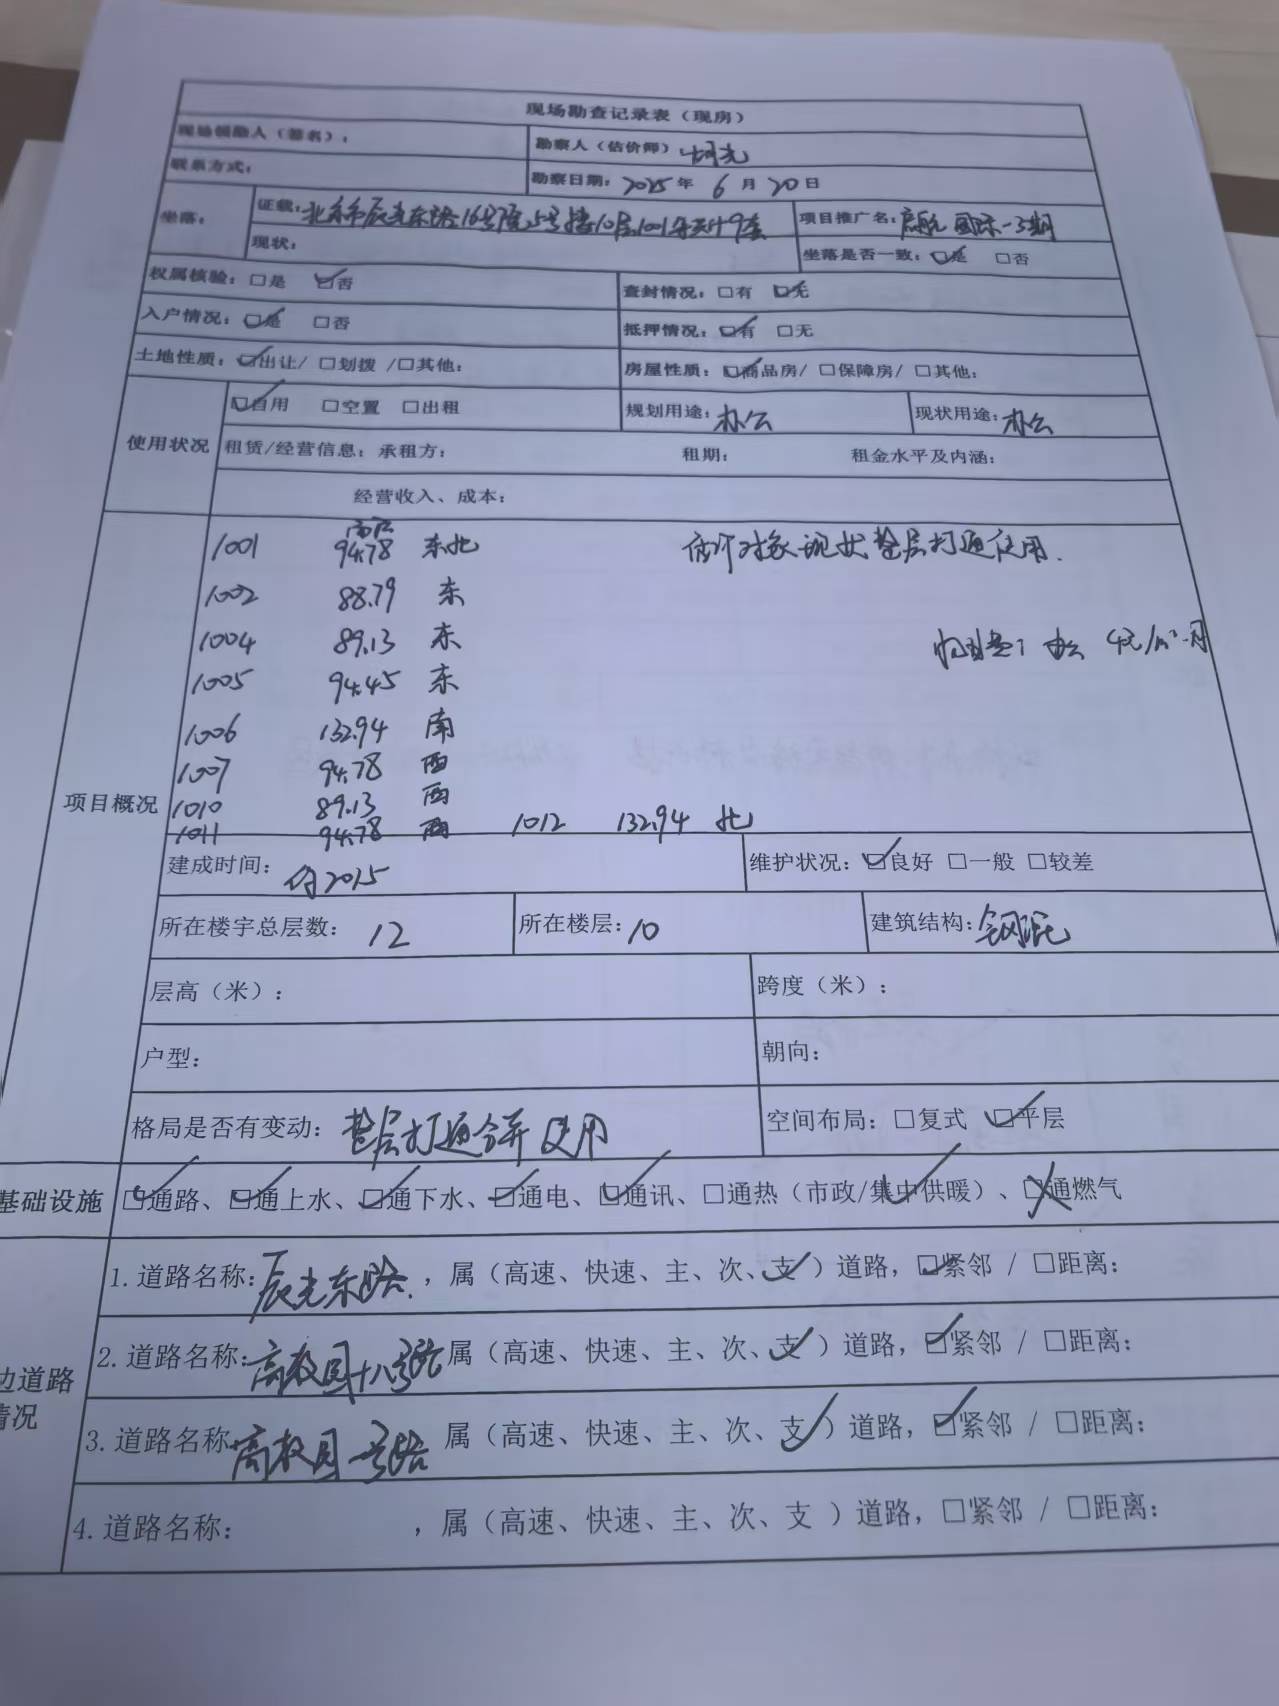 现场勘查记录表（现房）
现场领勘人（签名）：
勘察人（估价师）
联系方式：
勘察日期：2025年 6月20日
坐落：
证载：北京市辰光东路16号院5号楼10层1001等共计9套
项目推广名：启航国际-3期
现状：
坐落是否一致：☑是 □否
权属核验：□是 ☑否
查封情况：□有 ☑无
入户情况：☑是 □否
抵押情况：☑有 □无
土地性质：☑出让/ □划拨 /□其他：
房屋性质：☑商品房/ □保障房/ □其他：
使用状况
☑自用 □空置 □出租
规划用途：办公
现状用途：办公
租赁/经营信息：承租方： 租期： 租金水平及内涵：
经营收入、成本：
项目概况
1001 94.78 东北 估价对象现状整层打通使用.
1002 88.79 东
1004 89.13 东
办公 4元/㎡·月
1005 94.45 东
1006 132.94 南
1007 94.78 西
1010 89.13 西
1011 94.78 西 1012 132.94 北
建成时间：约2015
维护状况：☑良好 □一般 □较差
所在楼宇总层数：12
所在楼层：10
建筑结构：钢混
层高（米）：
跨度（米）：
户型：
朝向：
格局是否有变动：整层打通合并使用
空间布局：□复式 ☑平层
基础设施
☑通路、☑通上水、☑通下水、☑通电、☑通讯、□通热（市政/集中供暖）、☒通燃气
边道路
情况
1.道路名称：辰光东路.，属（高速、快速、主、次、支）道路，☑紧邻 / □距离：
2.道路名称：高教园十八号路 属（高速、快速、主、次、支）道路，☑紧邻 / □距离：
3.道路名称 高教园一号路 属（高速、快速、主、次、支）道路，☑紧邻 / □距离：
4.道路名称： ，属（高速、快速、主、次、支 ）道路，□紧邻 / □距离：